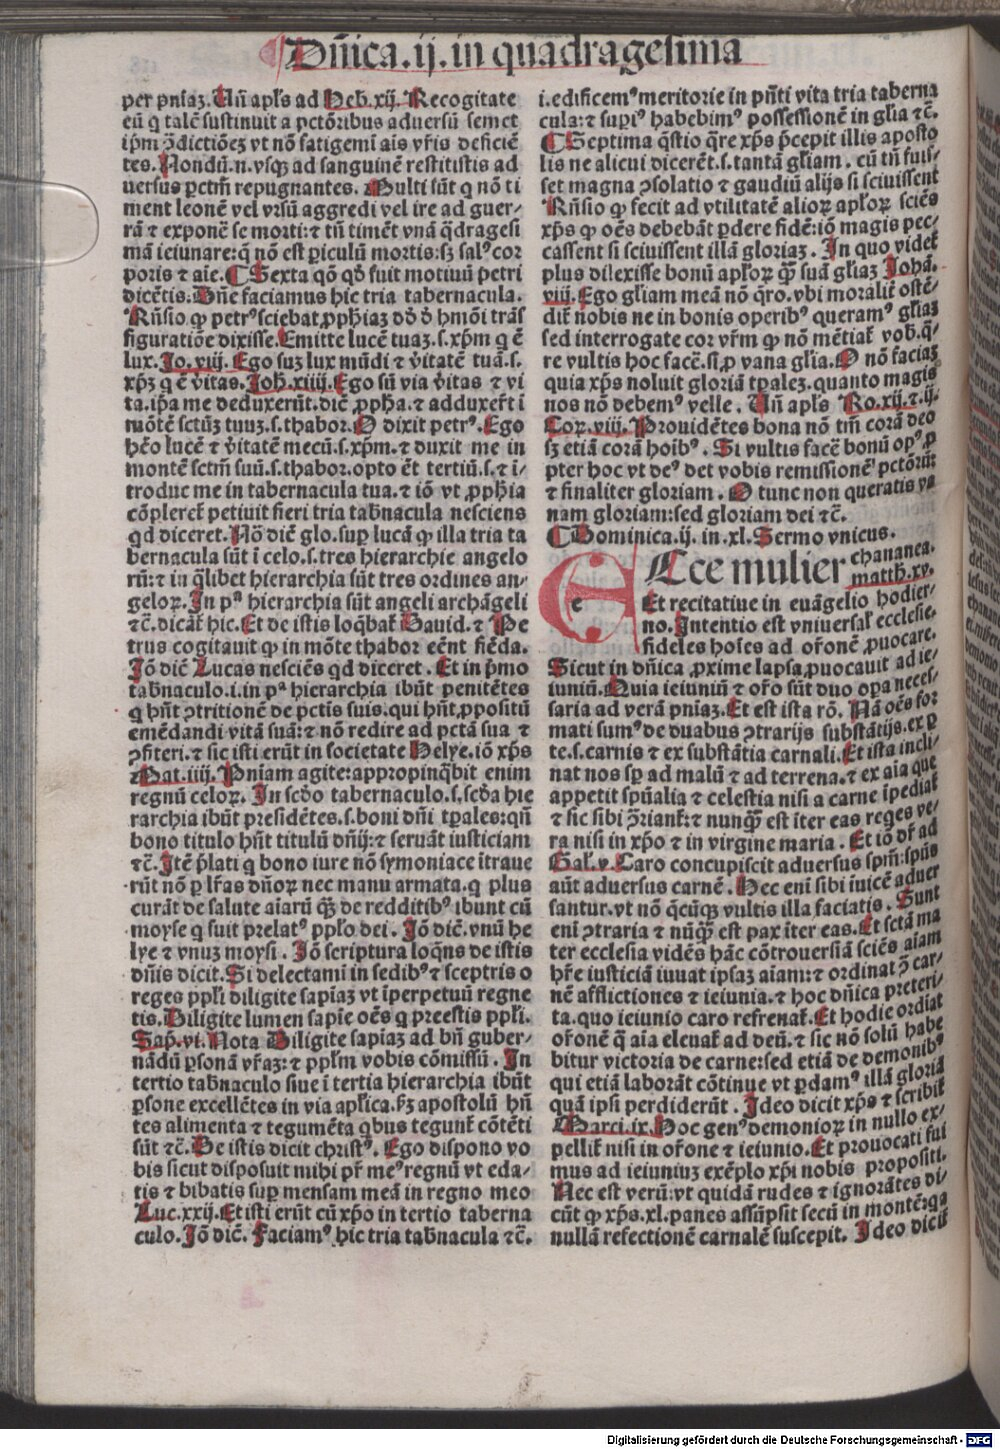 Dñica.ij.in quadragesima
per pniaꝫ. Uñ apl's ad Heb.xij. Recogitate
eū q talē sustinuit a pctōribus aduersū semet
ip̄m ɔ̄dictiōeꝫ vt nō fatigemī aīs vr̄is deficiē
tes. Nondū.n.vsqꝫ ad sanguinē restitistis ad
uersus pctm̄ repugnantes. Multi sūt q nō ti
ment leonē vel vrsū aggredi vel ire ad guer-
rā ⁊ exponē se morti:⁊ tñ timēt vnā q̄dragesi
mā ieiunare:q̄ nō est ꝑiculū mortis:sꝫ sal⁹ cor
poris ⁊ aīe. ¶ Sexta qō qd̄ fuit motiuū petri
dicētis: Dn̄e faciamus hic tria tabernacula.
Rñsio ꝙ petr⁹ sciebat ꝓphiaꝫ dd̄ d̄ hmōi trās
figuratiōe dixisse. Emitte lucē tuaꝫ.s.xp̄m q ē
lux. Jo.viij. Ego suꝫ lux mūdi ⁊ v̄itatē tuā.s.
xp̄ꝫ q ē v̄itas. Joh̄.xiiij. Ego sū via v̄itas ⁊ vi
ta.ip̄a me deduxerūt.dic̄ ꝓph̄a.⁊ adduxer̄t ī
mōtē sctūꝫ tuuꝫ.s.thabor. O dixit petr⁹. Ego
h̄eo lucē ⁊ v̄itatē mecū.s.xp̄m.⁊ duxit me in
montē sctm̄ suū.s.thabor.opto ēt tertiū.s.⁊ ī-
troduc me in tabernacula tua.⁊ iō vt ꝓph̄ia
cōpleret̄ petiuit fieri tria tab̄nacula nesciens
qd diceret. Nō dic̄ glo.sup̄ lucā ꝙ illa tria ta
bernacula sūt ī celo.s.tres hierarchie angelo
rū:⁊ in q̄libet hierarchia sūt tres ordines an-
geloꝝ. In pª hierarchia sūt angeli archāgeli
⁊c̄.dicāt̄ hic. Et de istis loq̄bat̄ Dauid.⁊ Pe
trus cogitauit ꝙ in mōte thabor eēnt fiēda.
Jō dic̄ Lucas nesciēs qd diceret. Et in p̄mo
tab̄naculo.i.in pª hierarchia ibūt penitētes
q hn̄t ɔtritionē de pctīs suis.qui hn̄t ꝓpositū
emēdandi vitā suā:⁊ nō redire ad pctā sua ⁊
ɔfiteri.⁊ sic isti erūt in societate Helye.iō xp̄s
Mat.iiij. Pniam agite:appropinq̄bit enim
regnū celoꝝ. In scd̄o tabernaculo.s.scd̄a hie
rarchia ibūt presidētes.s.boni dn̄i tp̄ales:qn̄
bono titulo hn̄t titulū dn̄ij:⁊ seruāt iusticiam
⁊c̄. Jtē p̄lati q bono iure nō symoniace ītraue
rūt nō p lr̄as dn̄oꝝ nec manu armata.q plus
curāt de salute aīarū q̄ꝫ de redditib⁹ ibunt cū
moyse q fuit prelat⁹ pp̄lo dei. Jō dic̄.vnū he
lye ⁊ vnuꝫ moysi. Jō scriptura loq̄ns de istis
dn̄is dicit. Si delectamī in sedib⁹ ⁊ sceptris o
reges pp̄li diligite sapīaꝫ vt īperpetuū regne
tis. Diligite lumen sapīe oēs q preestis pp̄lī.
Sap̄.vi. Nota Diligite sapīaꝫ ad bn̄ guber-
nādū psonā vr̄aꝫ:⁊ pp̄lm vobis cōmissū. In
tertio tab̄naculo siue ī tertia hierarchia ibūt
psone excellētes in via apl'ica.s̄ꝫ apostolū hn̄
tes alimenta ⁊ tegumēta qbus tegunt̄ cōtēti
sūt ⁊c̄. De istis dicit christ⁹. Ego dispono vo
bis sicut disposuit mihi pr̄ me⁹ regnū vt eda-
tis ⁊ bibatis sup̄ mensam meā in regno meo
Luc.xxij. Et isti erūt cū xp̄o in tertio taberna
culo. Jō dic̄. Faciam⁹ hic tria tab̄nacula ⁊c̄.
i.edificem⁹ meritorie in pn̄ti vita tria taberna
cula:⁊ supi⁹ habebim⁹ possessionē in glīa ⁊c̄.
¶ Septima q̄stio q̄re xp̄s p̄cepit illis aposto
lis ne alicui dicerēt.s.tantā gl'iam. cū tñ fuis-
set magna ɔsolatio ⁊ gaudiū alijs si sciuissent
Rñsio ꝙ fecit ad vtilitatē alioꝝ apl'oꝝ sciēs
xp̄s ꝙ oēs debebāt pdere fidē:iō magis pec-
cassent si sciuissent illā gloriaꝫ. In quo videt̄
plus dilexisse bonū apl'oꝝ q̄ꝫ suā gl'iaꝫ Johā.
viij. Ego gl'iam meā nō q̄ro.vbi moralit̄ ostē-
dit̄ nobis ne in bonis operib⁹ queram⁹ gl'iaꝫ
sed interrogate cor vr̄m ꝙ nō mētiat̄ vob.q̄-
re vultis hoc facē.si ꝓ vana gl'ia. O nō faciaꝫ
quia xp̄s noluit gloriā tp̄aleꝫ.quanto magis
nos nō debem⁹ velle. Uñ apl's Ro.xij.⁊.ij.
Cor.viij. Prouidētes bona nō tm̄ corā deo
sꝫ etiā corā hoīb⁹. Si vultis facē bonū op⁹ ꝓ
pter hoc vt de⁹ det vobis remissionē pctōrū:
⁊ finaliter gloriam. O tunc non queratis va
nam gloriam:sed gloriam dei ⁊c̄.
¶ Dominica.ij.in.xl. Sermo vnicus.
ECce mulier chananea.
matth.xv.
Et recitatiue in euāgelio hodier-
no. Intentio est vniuersal' ecclesie.
fideles hoīes ad or̄onē ꝓuocare.
Sicut in dn̄ica ꝓxime lapsa ꝓuocauit ad ie-
iuniū. Quia ieiuniū ⁊ or̄o sūt duo opa neces-
saria ad verā pniaꝫ. Et est ista rō. Nā oēs for
mati sum⁹ de duabus ɔtrarijs substātijs.ex p
te.s.carnis ⁊ ex substātia carnali. Et ista incli-
nat nos sp̄ ad malū ⁊ ad terrena.⁊ ex aīa que
appetit spūalia ⁊ celestia nisi a carne īpediat̄
⁊ sic sibi ɔ̄riant̄:⁊ nunq̄ꝫ est īter eas reges ve-
ra nisi in xp̄o ⁊ in virgine maria. Et iō dr̄ ad
Gal'.v. Caro concupiscit aduersus spm̄:spūs
aūt aduersus carnē. Hec enī sibi īuicē aduer
santur.vt nō q̄cūqꝫ vultis illa faciatis. Sunt
enī ɔtraria ⁊ nūq̄ꝫ est pax īter eas. Et sctā ma
ter ecclesia vidēs hāc cōtrouersiā sciēs aīam
hr̄e iusticiā iuuat ipsaꝫ aīam:⁊ ordinat ɔ̄ car-
nē afflictiones ⁊ ieiunia.⁊ hoc dn̄ica preteri-
ta.quo ieiunio caro refrenat̄. Et hodie ordīat
or̄onē q̄ aīa eleuat̄ ad deū.⁊ sic nō solū habe
bitur victoria de carne:sed etiā de demonib⁹
qui etiā laborāt cōtinue vt pdam⁹ illā gloriā
quā ipsi perdiderūt. Jdeo dicit xp̄s ⁊ scribit̄
Marci.ix. Hoc gen⁹ demonioꝝ in nullo ex-
pellit̄ nisi in or̄one ⁊ ieiunio. Et prouocati sui
mus ad ieiuniuꝫ exēplo xp̄i nobis propositi.
Nec est verū:vt quidā rudes ⁊ ignorātes di-
cūt ꝙ xp̄s.xl.panes assūpsit secū in montē:qa
nullā refectionē carnalē suscepit. Jdeo dicit̄
Digitalisierung gefördert durch die Deutsche Forschungsgemeinschaft - DFG